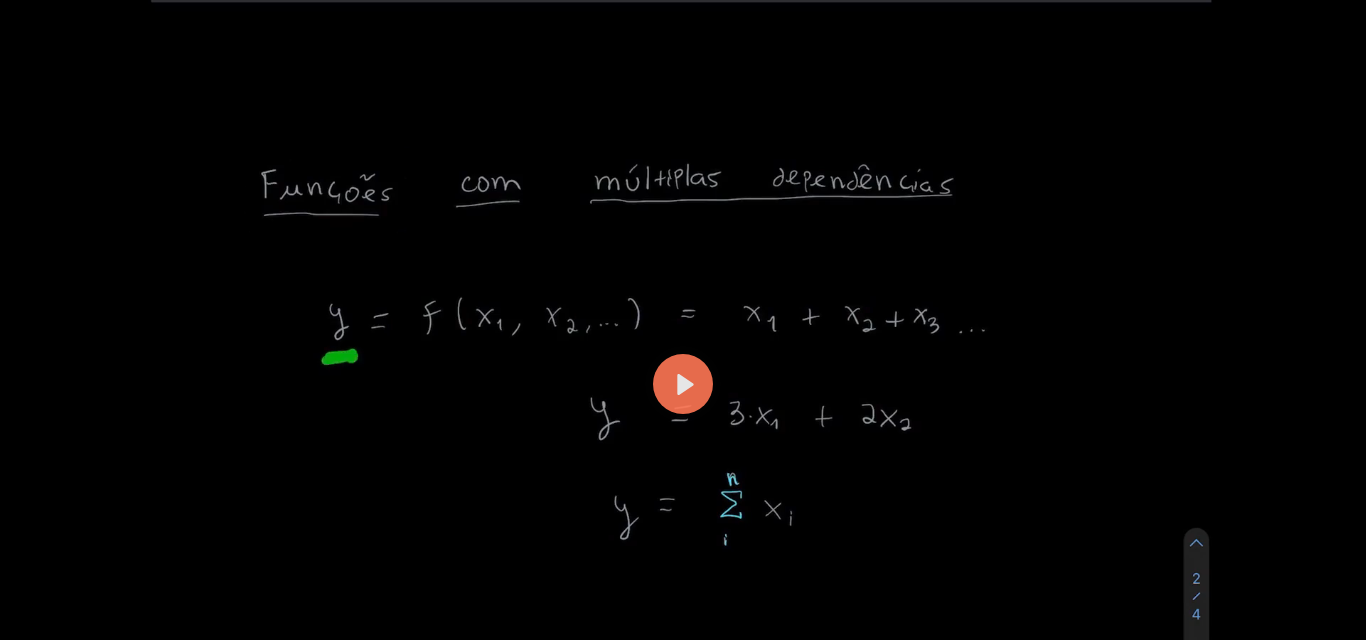 Funções com múltiplas dependências
y = f(x₁, x₂,...) = x₁ + x₂ + x₃ ...
y = 3·x₁ + 2x₂
n
y = Σ xᵢ
i
2
/
4